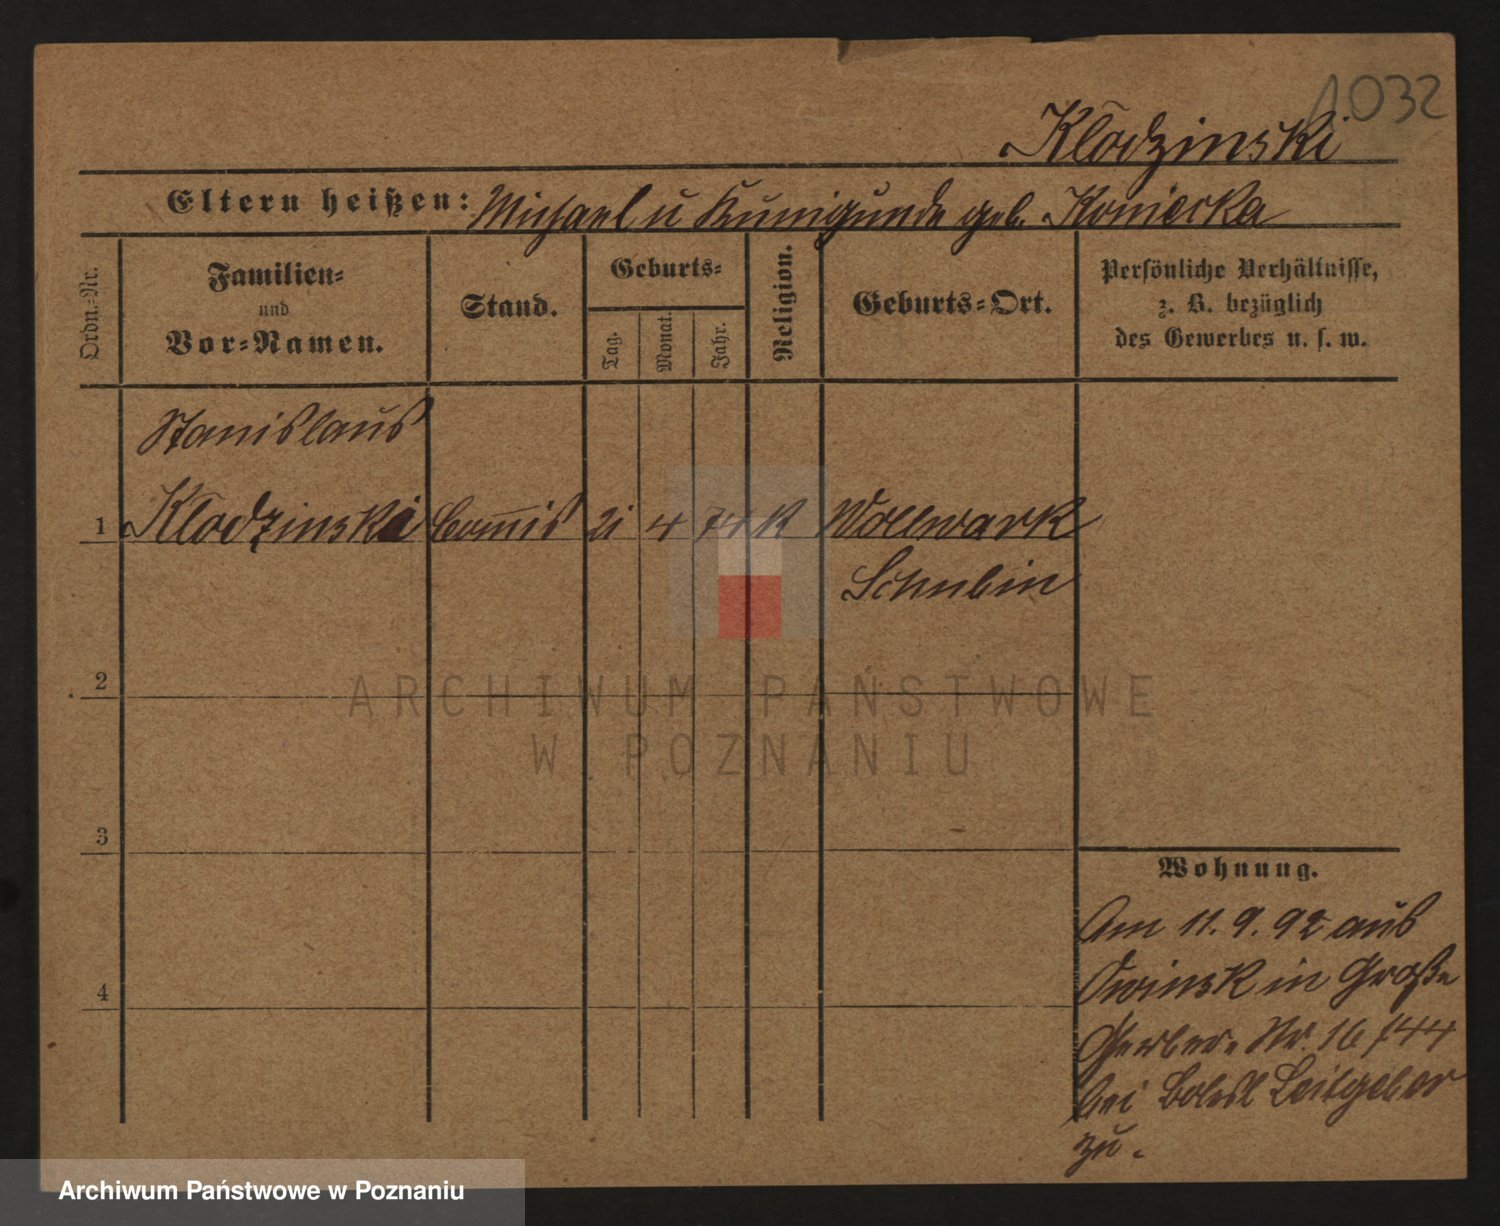 1032
Klodzinski
Eltern heißen: Michael u Kunigunde geb. Koniecka
Ordn.-Nr.
Familien-
und
Vor-Namen.
Stand.
Geburts-
Tag.
Monat.
Jahr.
Religion.
Geburts-Ort.
Persönliche Verhältnisse,
z. B. bezüglich
des Gewerbes u. s. w.
Stanislaus
1 Klodzinski Com̅is 21 4 74 K Wollwark
Schubin
2
3
4
Wohnung.
Am 11. 9. 92 aus
Owinsk in Große
Gerber. Nr. 16 /44
bei Bolesl Leitgeber
zu.
ARCHIWUM PAŃSTWOWE
W POZNANIU
Archiwum Państwowe w Poznaniu